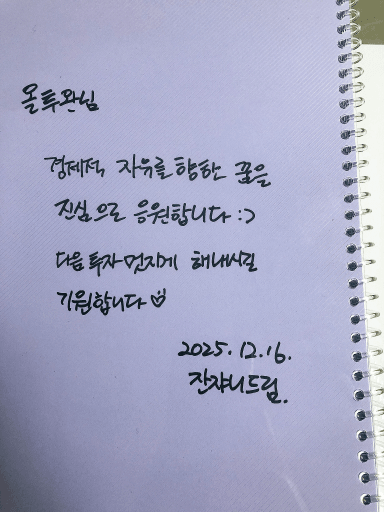 올투완님
경제적 자유를 향한 꿈을
진심으로 응원합니다 :)
다음 투자 멋지게 해내시길
기원합니다
2025. 12. 16.
잔쟈니드림.